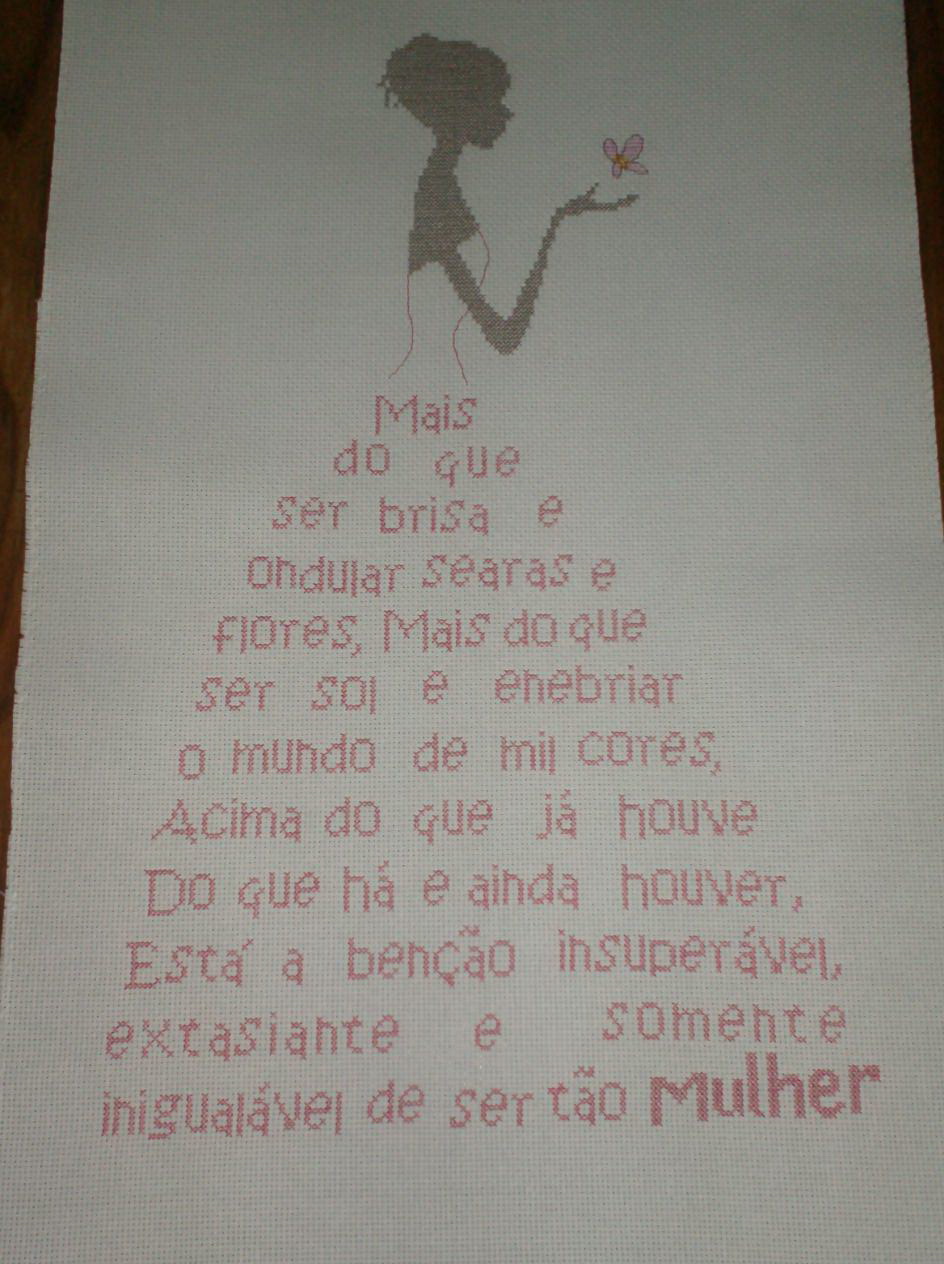 Mais
do que
ser brisa e
Ondular searas e
flores, Mais do que
ser sol e enebriar
o mundo de mil cores,
Acima do que já houve
Do que há e ainda houver,
Está a benção insuperável,
extasiante e somente
inigualável de ser tão Mulher